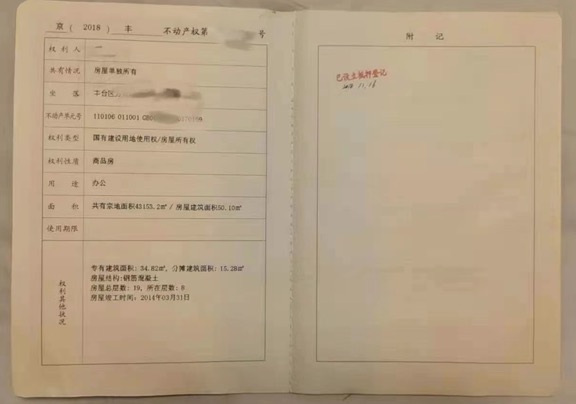 京( 2018 ) 丰 不动产权第 号
权利人
共有情况 房屋单独所有
坐落 丰台区
不动产单元号 110106 011001 GB0
权利类型 国有建设用地使用权/房屋所有权
权利性质 商品房
用途 办公
面积 共有宗地面积45153.2㎡ / 房屋建筑面积50.10㎡
使用期限
权利其他状况
专有建筑面积: 34.82㎡, 分摊建筑面积: 15.28㎡
房屋结构:钢筋混凝土
房屋总层数: 19, 所在层数: 8
房屋竣工时间: 2014年03月31日
附 记
已设立抵押登记